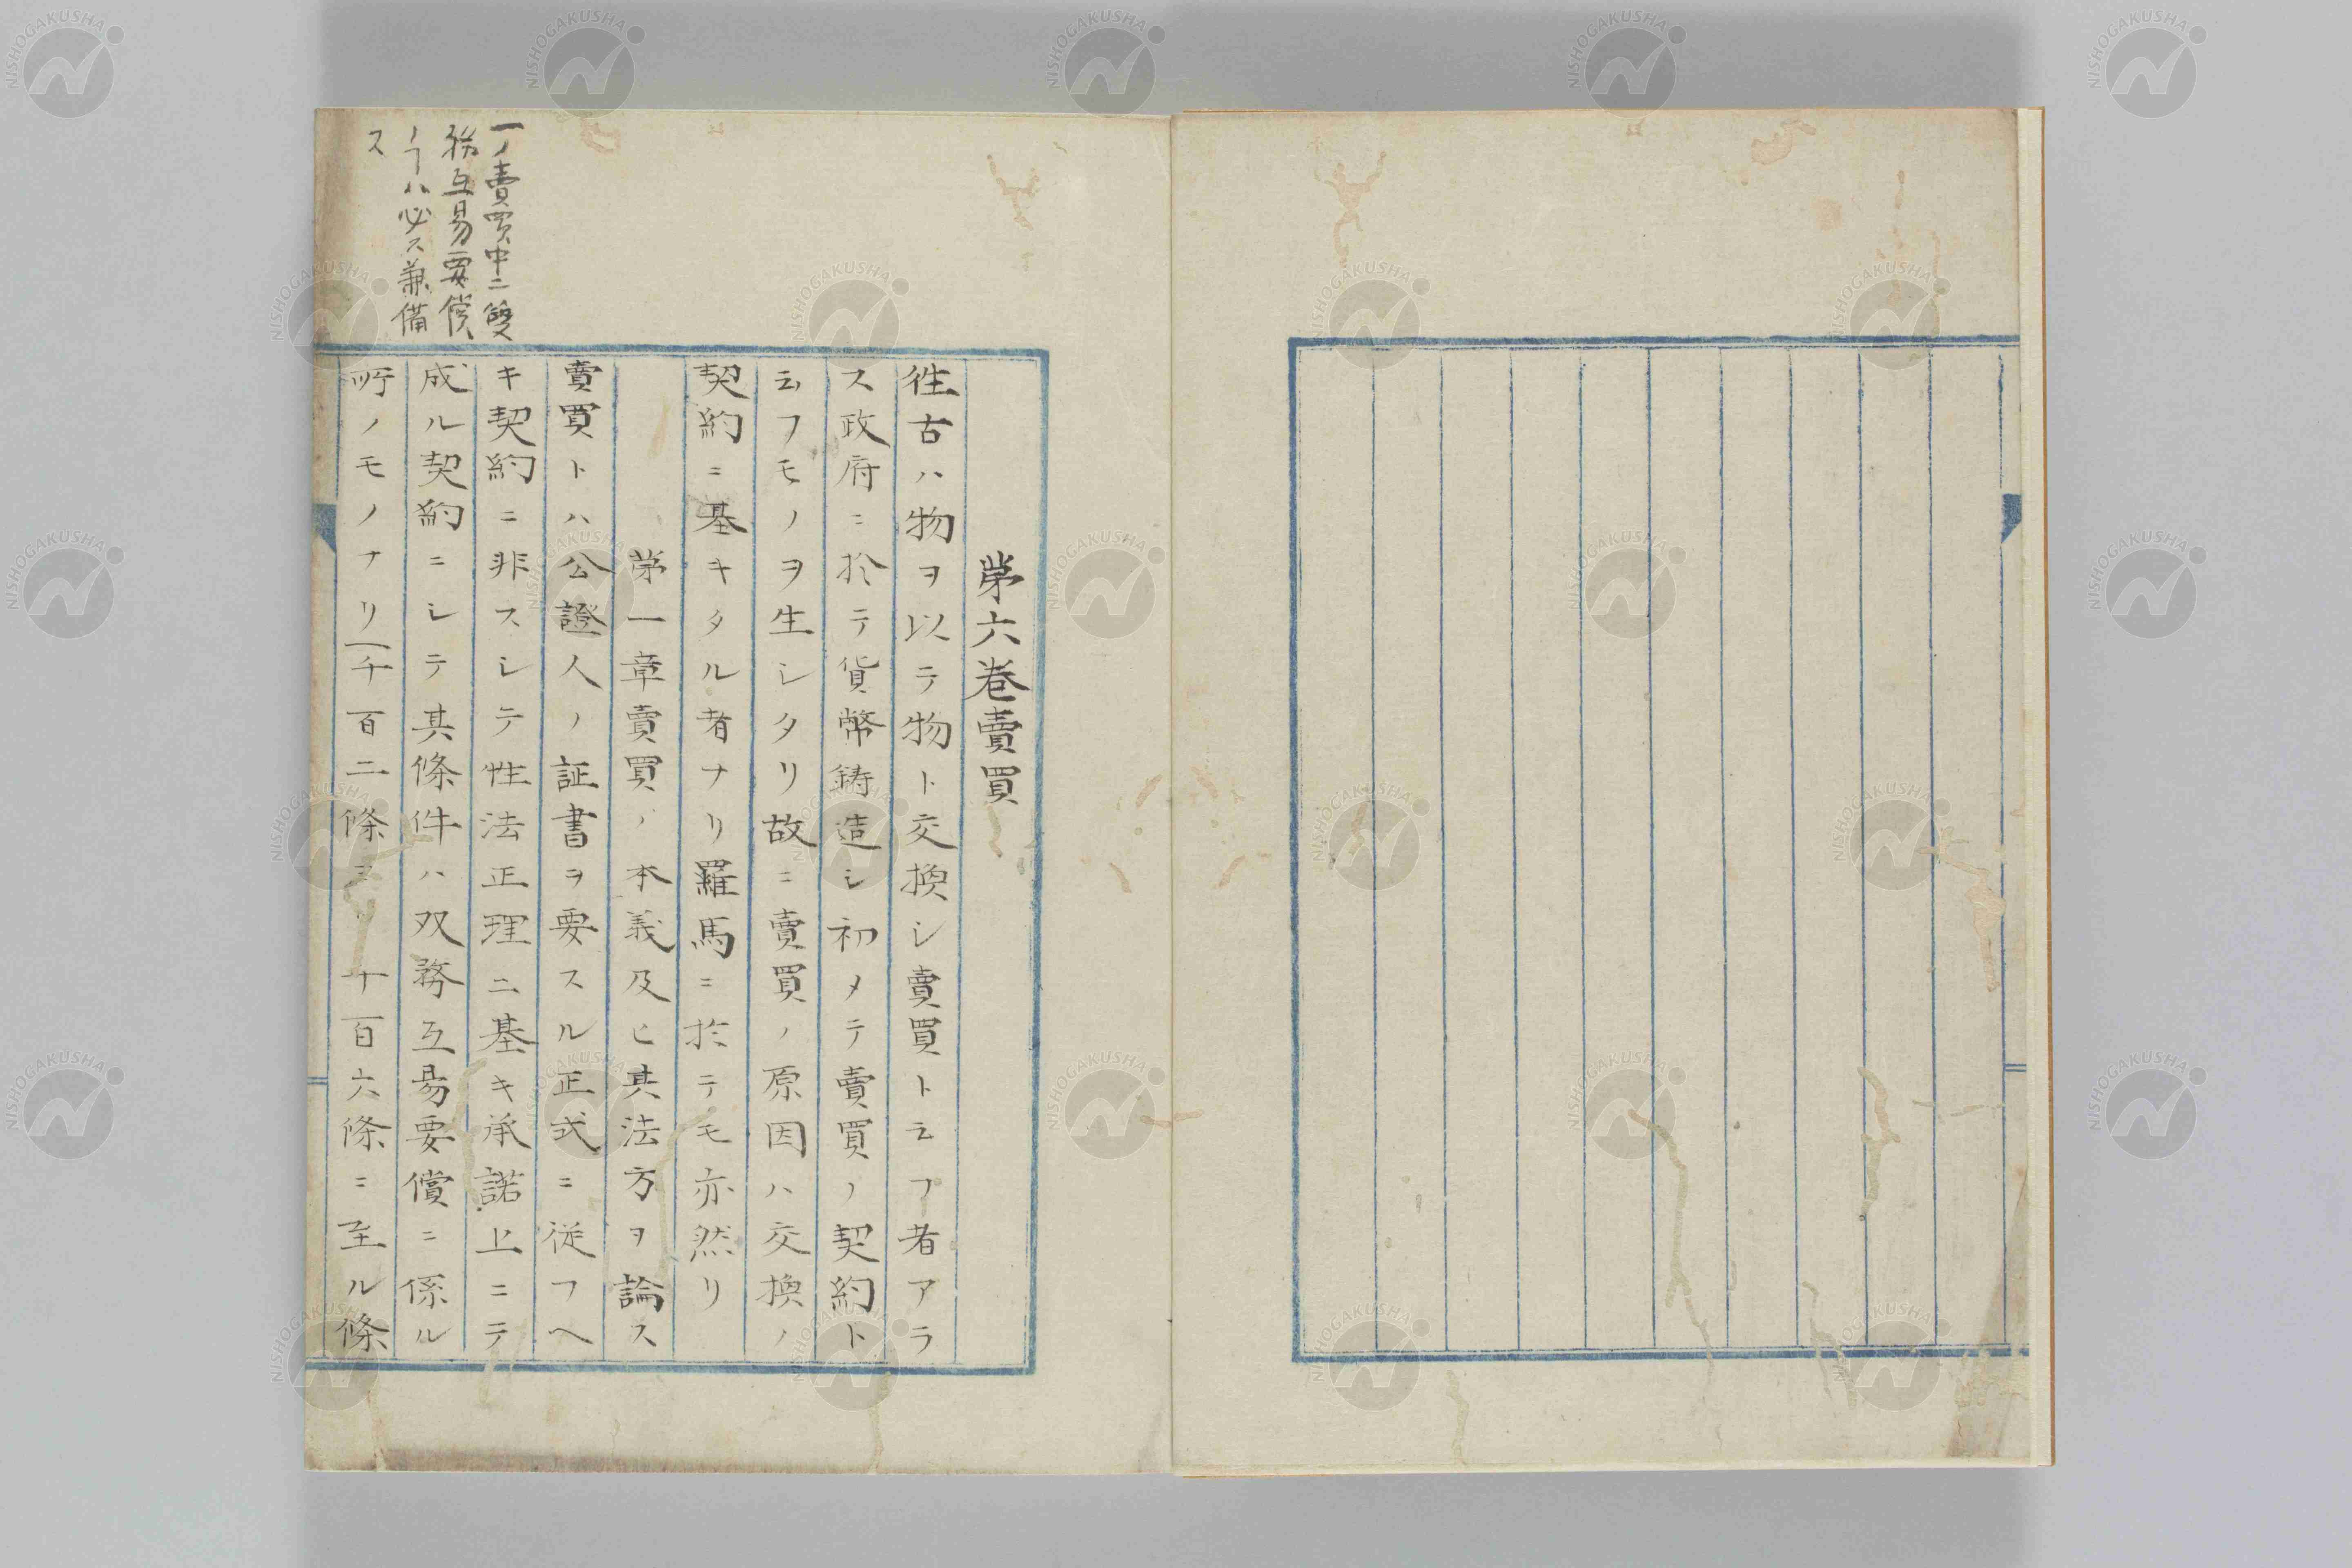 第六巻賣買
徃古ハ物ヲ以テ物ト交換シ賣買ト云フ者アラ
ス政府ニ於テ貨幣鋳造シ初メテ賣買ノ契約ト
云フモノヲ生シタリ故ニ賣買ノ原因ハ交換ノ
契約ニ基キタル者ナリ羅馬ニ於テモ亦然リ
第一章賣買ノ本義及ヒ其法方ヲ論ス
賣買トハ公證人ノ証書ヲ要スル正式ニ従フヘ
キ契約ニ非スシテ性法正理ニ基キ承諾上ニテ
成ル契約ニシテ其條件ハ双務互易要償ニ係ル
所ノモノナリ千百二條ヨリ千百六條ニ至ル條
一ノ賣買中ニ雙
務互易要償
ノヿハ必ス兼備
ス
NISHOGAKUSHA